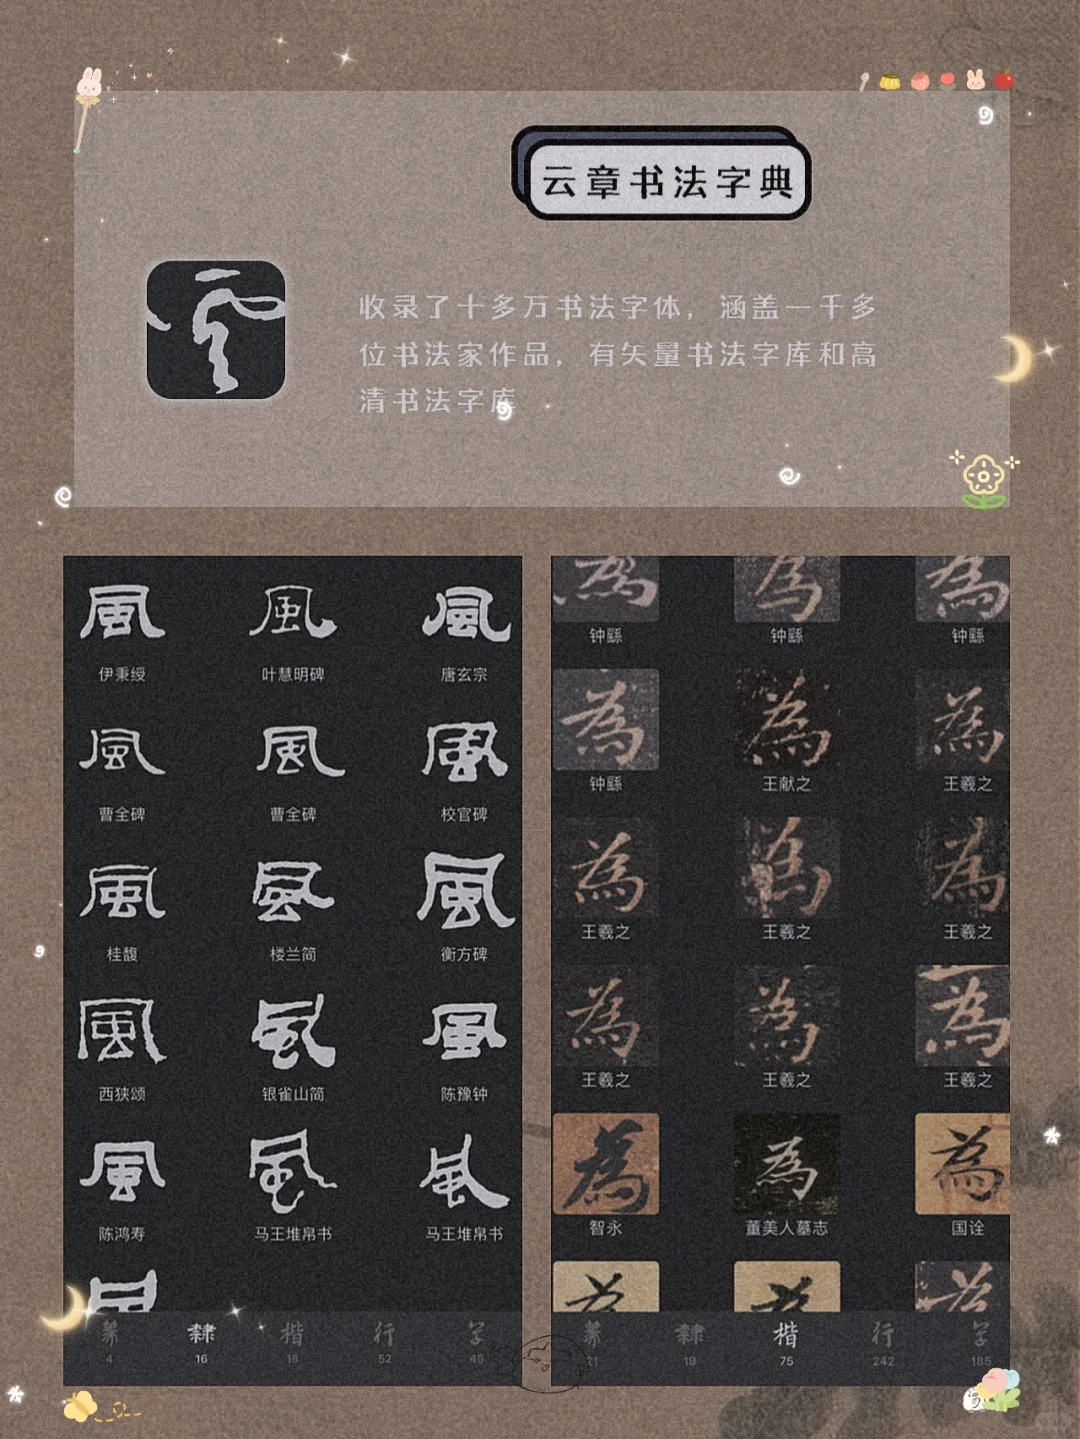 云章书法字典
收录了十多万书法字体，涵盖一千多
位书法家作品，有矢量书法字库和高
清书法字库
風 風 風
伊秉绶 叶慧明碑 唐玄宗
風 風 風
曹全碑 曹全碑 校官碑
風 風 風
桂馥 楼兰简 衡方碑
風 風 風
西狭颂 银雀山简 陈豫钟
風 風 風
陈鸿寿 马王堆帛书 马王堆帛书
篆 隸 楷 行 草
4 16 18 52 45
為 為 為
钟繇 钟繇 钟繇
為 為 為
钟繇 王献之 王羲之
為 為 為
王羲之 王羲之 王羲之
為 為 為
王羲之 王羲之 王羲之
為 為 為
智永 董美人墓志 国诠
篆 隸 楷 行 草
21 19 75 242 185